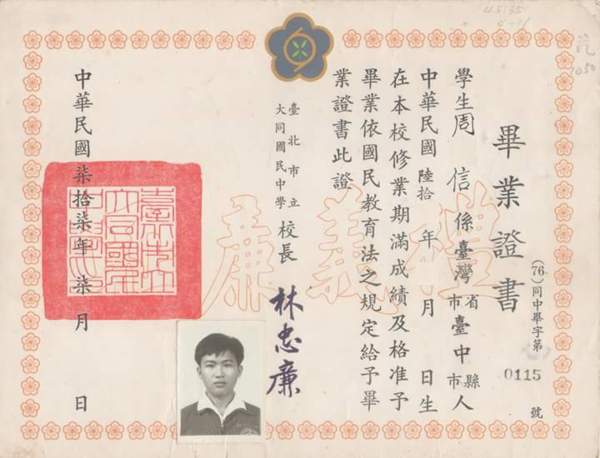 畢業證書
(76)同中畢字第0115號
學生周信係臺灣省市臺中縣市人
中華民國陸拾年月日生
在本校修業期滿成績及格准予
畢業依國民教育法之規定給予畢
業證書此證
臺北市立
大同國民中學
校長林忠廉
中華民國柒拾柒年柒月日
禮義廉